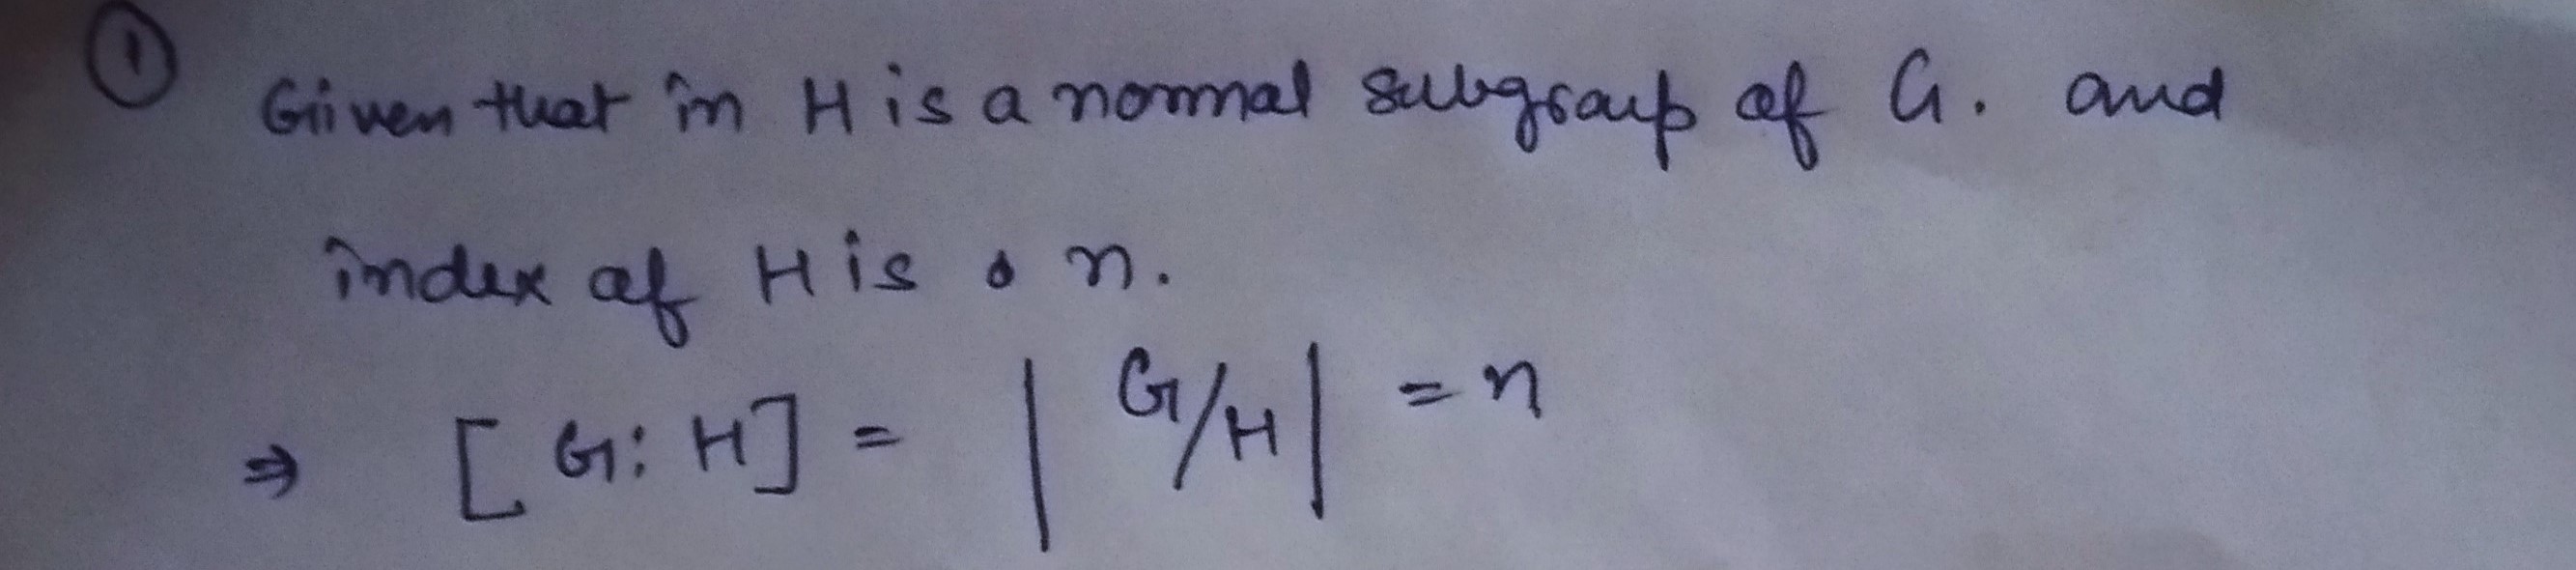 ① Given that in H is a normal subgroup of G. and
index of H is n.
⇒ [G:H] = |G/H| = n